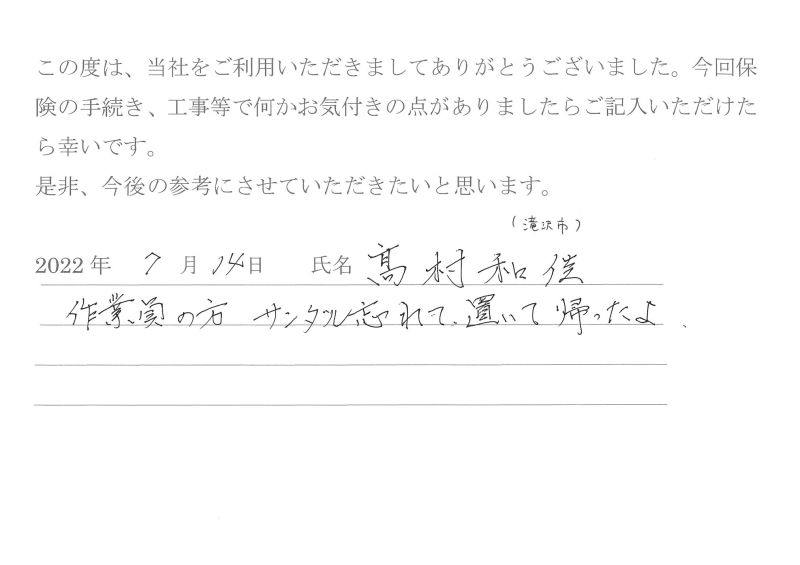 この度は、当社をご利用いただきましてありがとうございました。今回保
険の手続き、工事等で何かお気付きの点がありましたらご記入いただけた
ら幸いです。
是非、今後の参考にさせていただきたいと思います。
(滝沢市)
2022年 7月 14日 氏名 髙村和
作業員の方 サンダル忘れて、置いて帰ったよ、